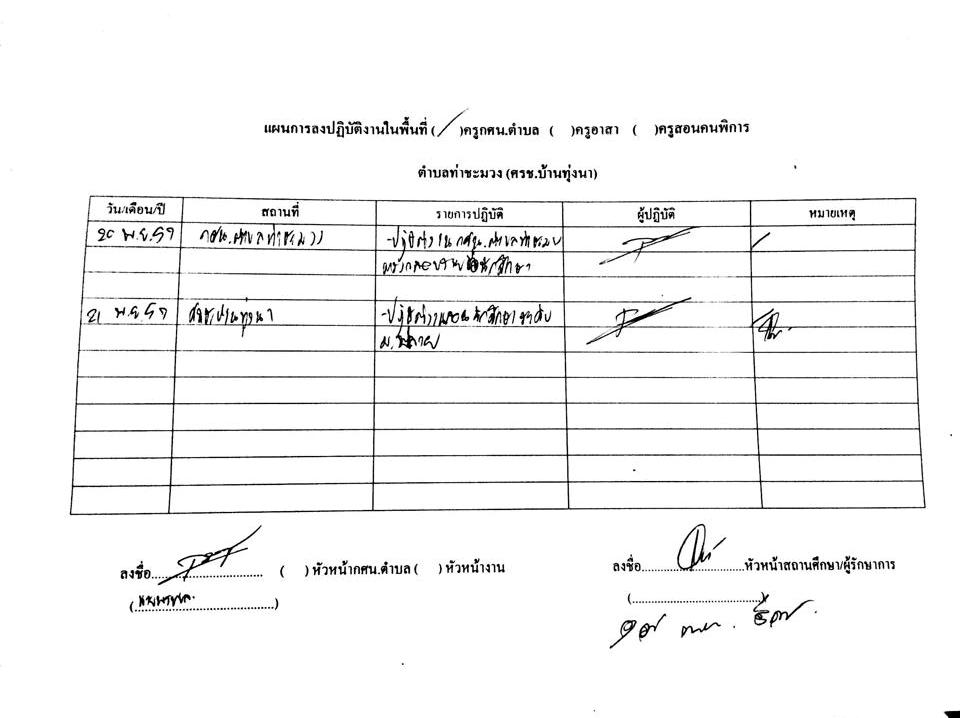 แผนการลงปฏิบัติงานในพื้นที่ ( / )ครูกศน.ตำบล ( )ครูอาสา ( )ครูสอนคนพิการ
ตำบลท่าชะมวง (ศรช.บ้านทุ่งนา)
วัน/เดือน/ปี สถานที่ รายการปฏิบัติ ผู้ปฏิบัติ หมายเหตุ
20 พ.ย.59 กศน.ตำบลท่าชะมวง -ปฏิบัติงาน กศน.ตำบลท่าชะมวง
นักศึกษา
21 พ.ย.59 ศรช.บ้านทุ่งนา -ปฏิบัติงานสอนนักศึกษาระดับ
ม.ปลาย
ลงชื่อ.............................. ( )หัวหน้ากศน.ตำบล ( )หัวหน้างาน
ลงชื่อ..............................หัวหน้าสถานศึกษา/ผู้รักษาการ